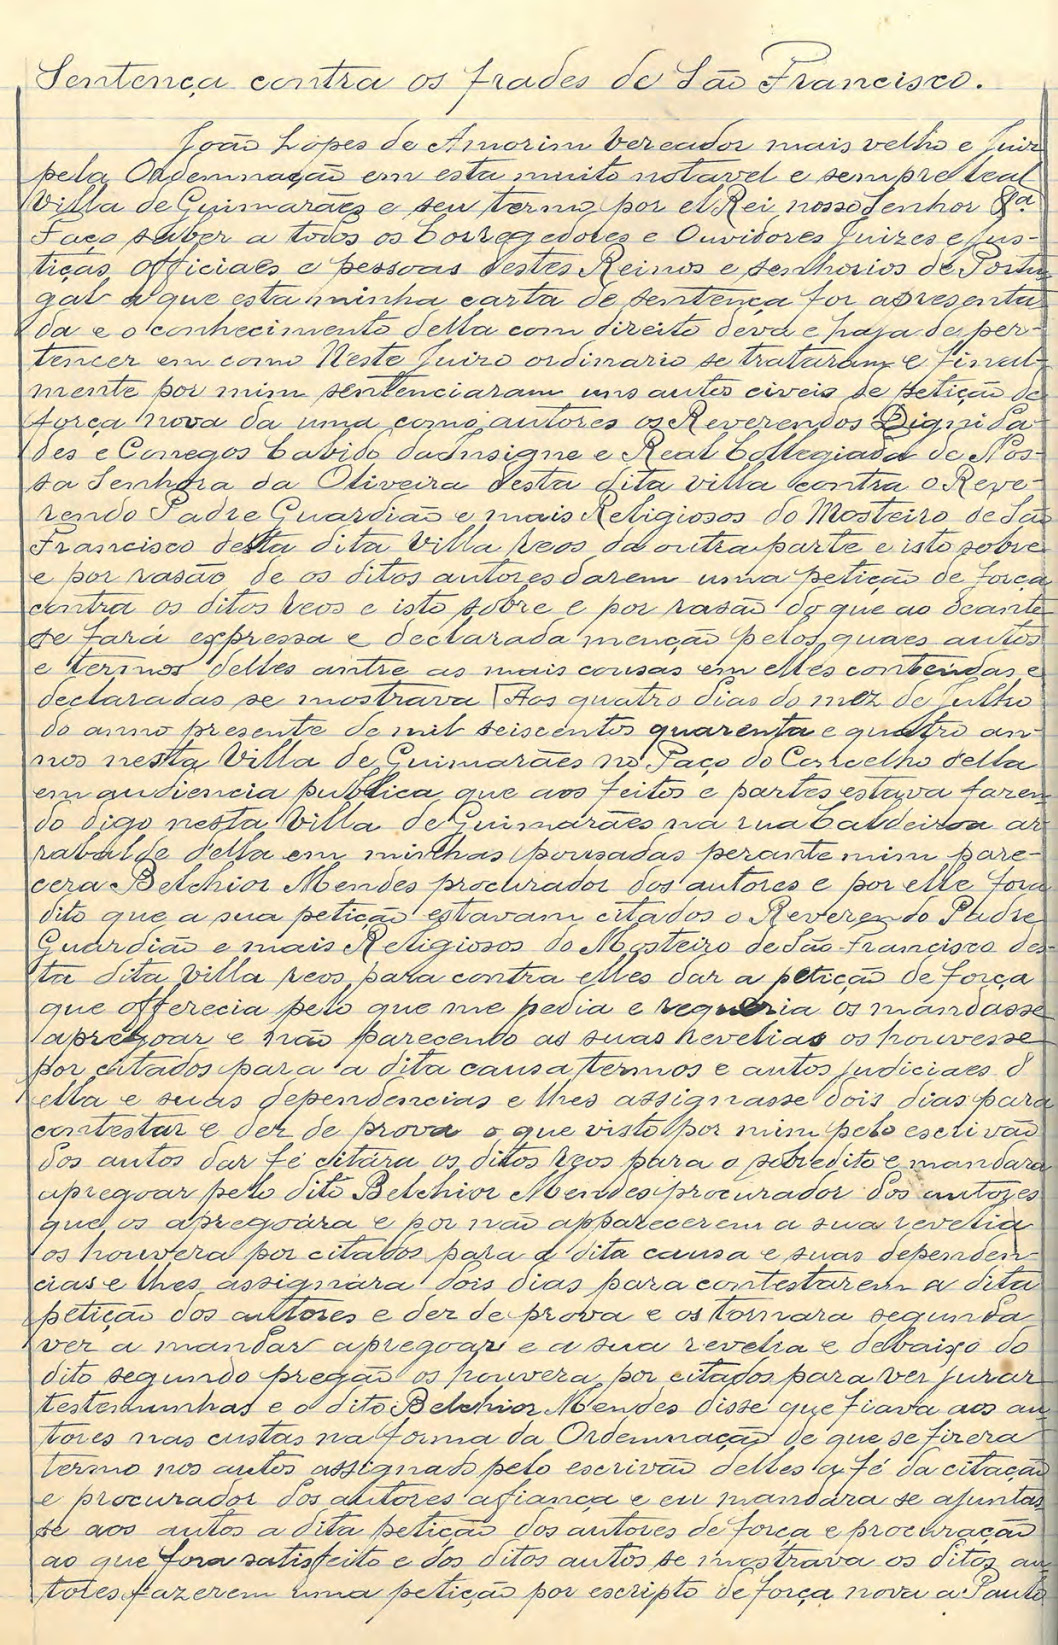 Sentença contra os frades de São Francisco.
João Lopes de Amorim Vereador mais velho e Juiz
pela Ordemnação em esta muito notavel e sempre leal
Villa de Guimarães e seu termo por el Rei nosso Senhor &ª
Faço saber a todos os Corregedores e Ouvidores Juizes e Jus-
tiças Officiaes e pessoas destes Reinos e senhorios de Portu
gal a que esta minha carta de sentença for apresenta
da e o conhecimento della com direito deva e haja de per-
tencer em como Neste Juizo ordinario se trataram e final-
mente por mim sentenciaram uns autos civeis de petição de
força nova da uma como autores os Reverendos Dignida-
des e Conegos Cabido da Insigne e Real Collegiada de Nos-
sa Senhora da Oliveira desta dita villa contra o Reve-
rendo Padre Guardião e mais Religiosos do Mosteiro de São
Francisco desta dita Villa reos da outra parte e isto sobre
e por rasão de os ditos autores darem uma petição de força
contra os ditos reos e isto sobre e por rasão do que ao deante
se fará expressa e declarada menção pelos quaes autos
e termos delles antre as mais cousas em elles contendas e
declaradas se mostrava Aos quatro dias do mez de Julho
do anno presente de mil seiscentos quarenta e quatro an-
nos nesta Villa de Guimarães no Paço do Concelho della
em audiencia publica que aos feitos e partes estava fazen
do digo nesta Villa de Guimarães na rua Caldeiroa ar
rabalde della em minhas pousadas perante mim pare-
cera Belchior Mendes procurador dos autores e por elle fora
dito que a sua petição estavam citados o Reverendo Padre
Guardião e mais Religiosos do Mosteiro de São Francisco des-
ta dita villa reos para contra elles dar a petição de força
que offerecia pelo que me pedia e requeria os mandasse
apregoar e não parecendo as suas revelias os houvesse
por citados para a dita causa termos e autos judiciaes d
ella e suas dependencias e lhes assignasse dois dias para
contestar e der de prova o que visto por mim pelo escrivão
dos autos dar fé citára os ditos reos para o sobredito e mandara
apregoar pelo dito Belchior Mendes procurador dos autores
que os apregoára e por não apparecerem a sua revelia
os houvera por citados para a dita causa e suas dependen-
cias e lhes assignára dois dias para contestarem a dita
petição dos autores e der de prova e os tornara segunda
vez a mandar apregoar e a sua revelia e debaixo do
dito segundo pregão os houvera por citados para ver jurar
testemunhas e o dito Belchior Mendes disse que fiava aos au
tores nas custas na forma da Ordemnação de que se fizera
termo nos autos assignado pelo escrivão delles a fé da citação
e procurador dos autores a fiança e eu mandára se ajuntas
se aos autos a dita petição dos autores de força e procuração
ao que fora satisfeito e dos ditos autos se mostrava os ditos au
tores fazerem uma petição por escripto de força nova a Paulo